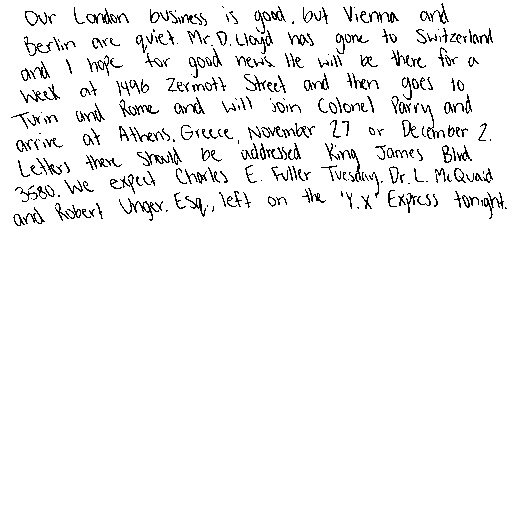 Our London business is good, but Vienna and
Berlin are quiet. Mr. D. Lloyd has gone to Switzerland
and I hope for good news. He will be there for a
week at 1496 Zermott Street and then goes to
Turin and Rome and will join Colonel Parry and
arrive at Athens, Greece, November 27 or December 2.
Letters there should be addressed King James Blvd
3580. We expect Charles E. Fuller Tuesday. Dr. L. McQuaid
and Robert Unger, Esq., left on the 'Y.X' Express tonight.